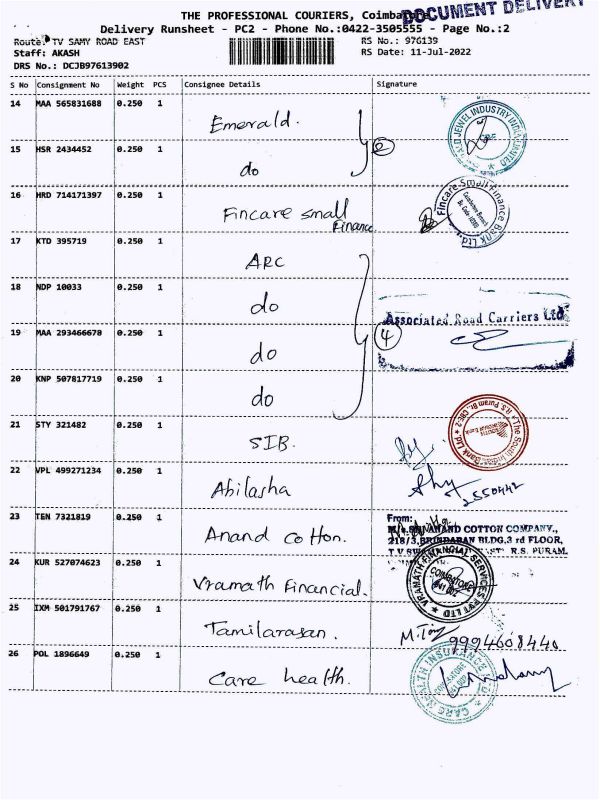 THE PROFESSIONAL COURIERS, Coimba
DOCUMENT DELIVERY
Delivery Runsheet - PC2 - Phone No.:0422-3505555 - Page No.:2
Route: TV SAMY ROAD EAST
RS No.: 976139
Staff: AKASH
RS Date: 11-Jul-2022
DRS No.: DCJB97613902
S No Consignment No Weight PCS Consignee Details Signature
14 MAA 565831688 0.250 1 Emerald.
15 HSR 2434452 0.250 1 do 2
16 HRD 714171397 0.250 1 Fincare small Finance
Fincare Small Finance Bank Ltd
17 KTD 395719 0.250 1 ARC
18 NDP 10033 0.250 1 do
Associated Road Carriers Ltd
19 MAA 293466678 0.250 1 do 4
20 KNP 507817719 0.250 1 do
21 STY 321482 0.250 1 SIB.
22 VPL 499271234 0.250 1 Abilasha
23 TEN 7321819 0.250 1 Anand cotton.
From:
ANAND COTTON COMPANY.,
218/3, BRINDABAN BLDG, 3 rd FLOOR,
R.S. PURAM.
24 KUR 527074623 0.250 1 Vramath Financial.
VRAMATH FINANCIAL SERVICES PVT LTD
COIMBATORE
25 IXM 501791767 0.250 1 Tamilarasan. 9994608440
26 POL 1896649 0.250 1 Care health.
CARE HEALTH INSURANCE LTD